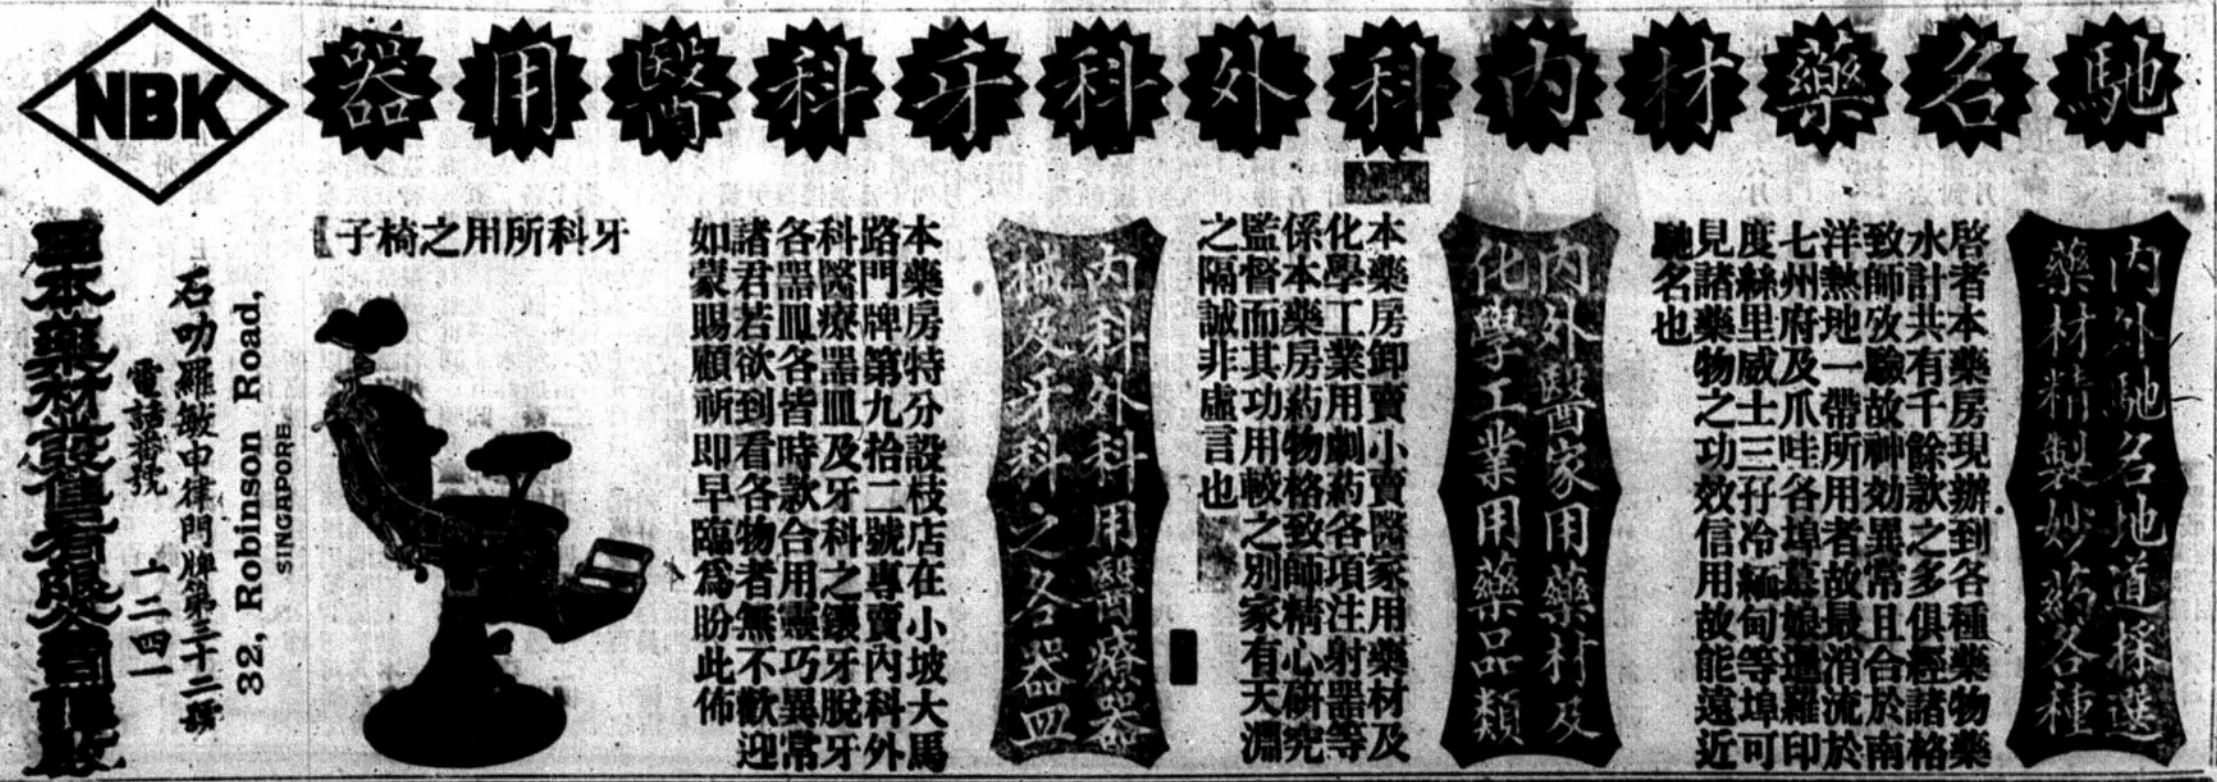 馳名藥材內科外科牙科醫用器
內外馳名地道採選
藥材精製妙葯各種
啓者本藥房現辦到各種藥物藥
水計共有千餘款之多俱經諸格
致師攷驗故神効異常且合於南
洋熱地一帶所用者故最消流於
七州府及爪哇各埠墓娘暹羅印
度絲里威士三孖冷緬甸等埠可
見諸藥物之功效信用故能遠近
馳名也
內外醫家用藥材及
化學工業用藥品類
本藥房卸賣小賣醫家用藥材及
化學工業用劇葯各項注射噐等
係本藥房葯物格致師精心研究
監督而其功用較之別家有天淵
之隔誠非虛言也
內科外科用醫療器
械及牙科之各器皿
本藥房特分設枝店在小坡大馬
路門牌第九拾二號專賣內科外
科醫療噐皿及牙科之鑲牙脫牙
各噐皿各皆時款合用靈巧異常
諸君若欲到看各物者無不歡迎
如蒙賜顧祈即早臨爲盼此佈
牙科所用之椅子
NBK
32, Robinson Road,
SINGAPORE.
石叻羅敏申律門牌第三十二號
電話番號 一二四一
日本藥材發售有限公司